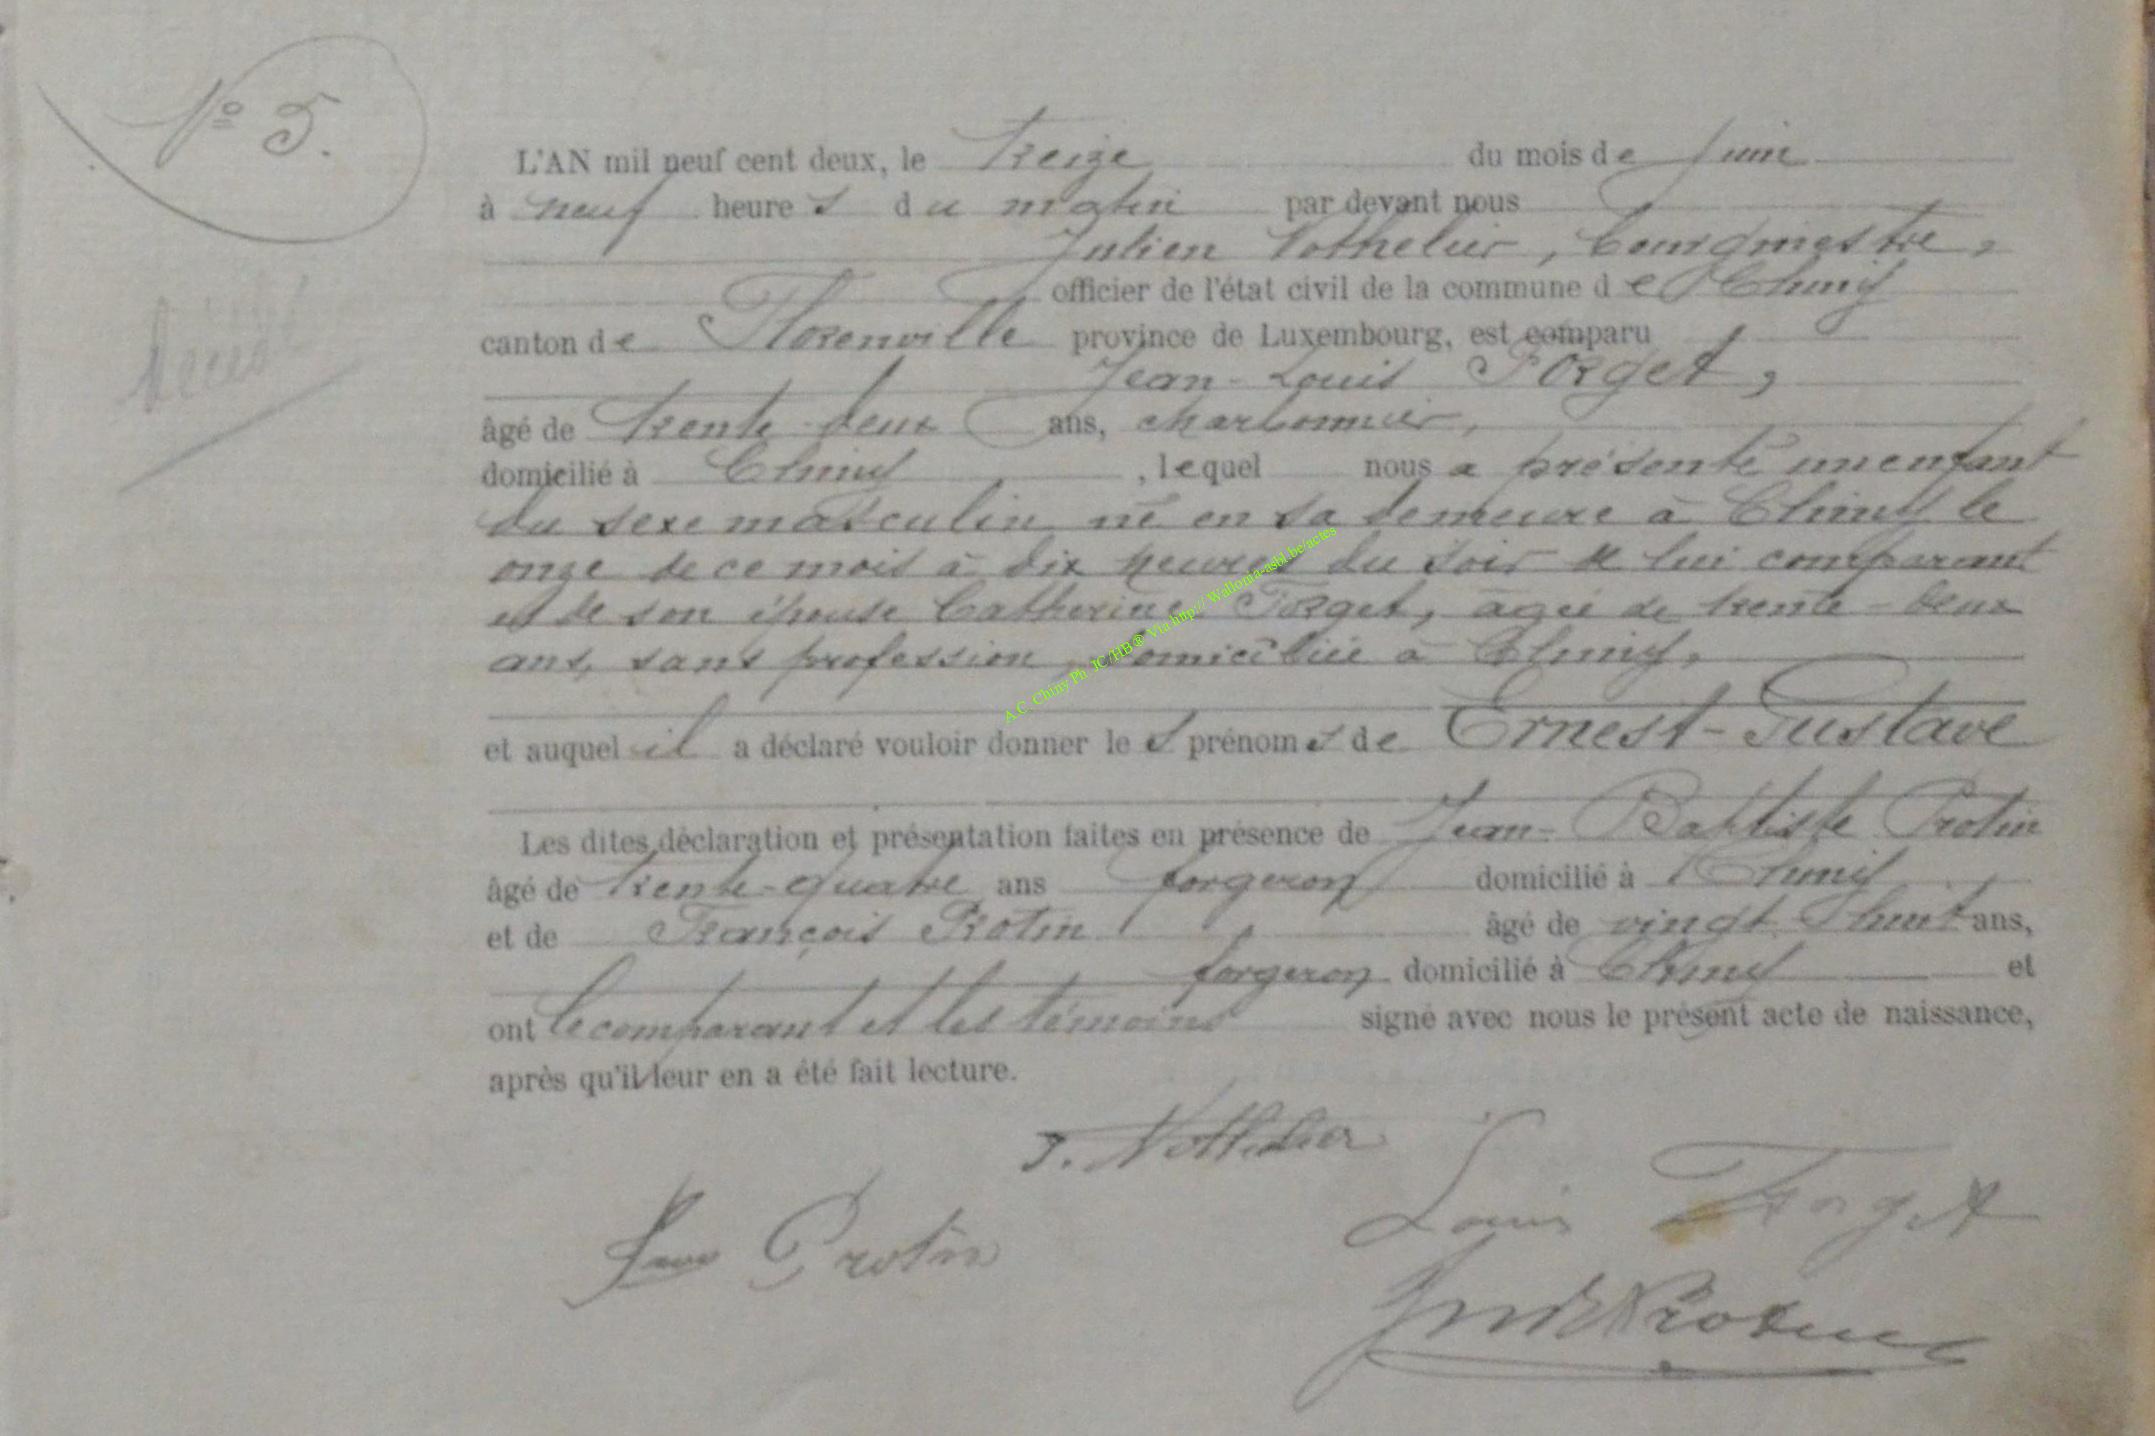 N° 5.
L'AN mil neuf cent deux, le Treize du mois de Juin
à neuf heures du matin par devant nous
Julien Nothelier, bourgmestre,
officier de l'état civil de la commune de Chiny
canton de Florenville province de Luxembourg, est comparu
Jean-Louis Forget,
âgé de trente-deux ans, charbonnier,
domicilié à Chiny, lequel nous a présenté un enfant
du sexe masculin né en sa demeure à Chiny le
onze de ce mois à dix heures du soir de lui comparant
et de son épouse Catherine Forget, agée de trente-deux
ans, sans profession, domiciliée à Chiny,
et auquel il a déclaré vouloir donner les prénoms de Ernest-Gustave
Les dites déclaration et présentation faites en présence de Jean-Baptiste Protin
âgé de trente-quatre ans forgeron domicilié à Chiny
et de François Protin âgé de vingt-huit ans,
forgeron domicilié à Chiny et
ont le comparant et les témoins signé avec nous le présent acte de naissance,
après qu'il leur en a été fait lecture.
J. Nothelier
Louis Forget
Protin
Protin
A.C. Chiny Ph. JC/HB® Via http://Wallonia-asbl.be/actes